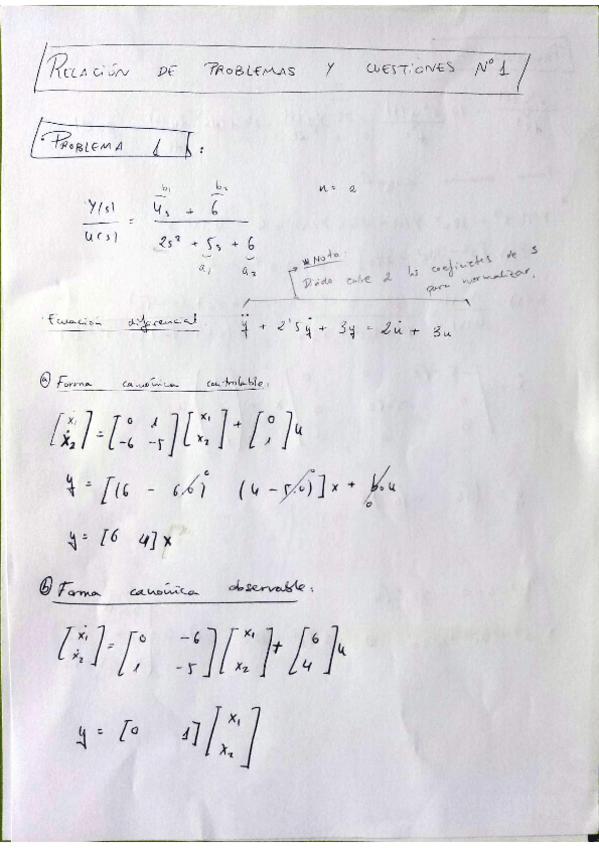 RELACIÓN DE PROBLEMAS Y CUESTIONES Nº 1
PROBLEMA 1:
b₁ b₂
Y(s)/U(s) = (4s + 6)/(2s² + 5s + 6) n = 2
a₁ a₂
* Nota:
Divido entre 2 los coeficientes de s
para normalizar.
Ecuación diferencial ÿ + 2'5ẏ + 3y = 2u̇ + 3u
ⓐ Forma canónica controlable:
[ẋ₁ ẋ₂] = [0 1 -6 -5][x₁ x₂] + [0 1]u
y = [(6 - 6·0)⁰ (4 - 5·0)⁰]x + b₀u
0
y = [6 4]x
ⓑ Forma canónica observable:
[ẋ₁ ẋ₂] = [0 -6 1 -5][x₁ x₂] + [6 4]u
y = [0 1][x₁ x₂]